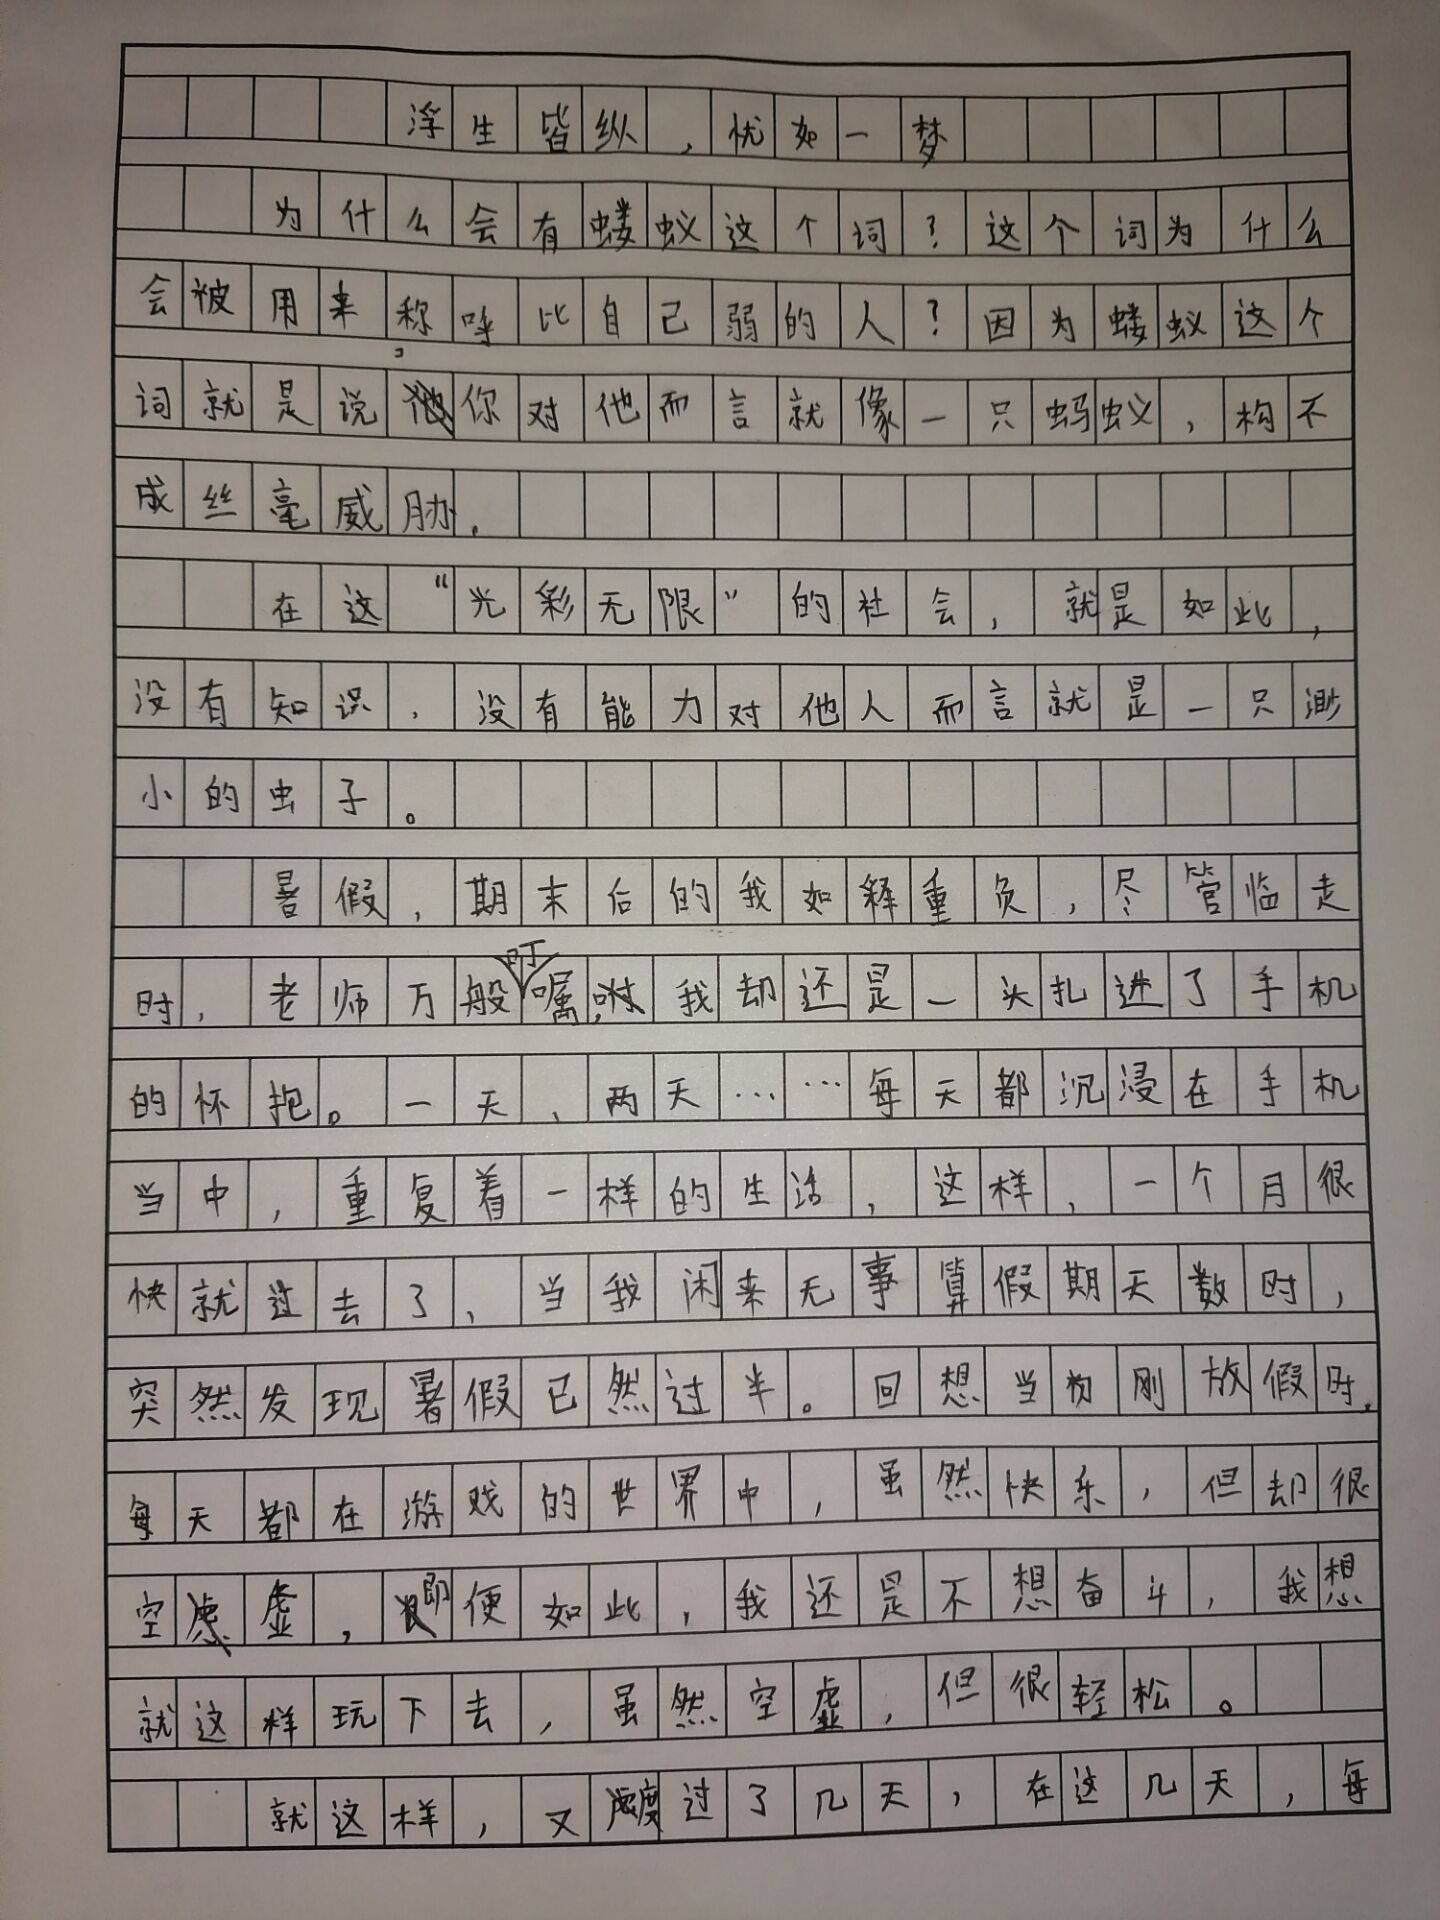 浮生皆纵，忧如一梦
为什么会有蝼蚁这个词？这个词为什么
会被用来称呼比自己弱的人？因为蝼蚁这个
词就是说，你对他而言就像一只蚂蚁，构不
成丝毫威胁.
在这“光彩无限”的社会，就是如此，
没有知识，没有能力对他人而言就是一只渺
小的虫子。
暑假，期末后的我如释重负，尽管临走
时，老师万般叮嘱，我却还是一头扎进了手机
的怀抱。一天、两天……每天都沉浸在手机
当中，重复着一样的生活，这样，一个月很
快就过去了，当我闲来无事算假期天数时，
突然发现暑假已然过半。回想当初刚放假时，
每天都在游戏的世界中，虽然快乐，但却很
空虚，即便如此，我还是不想奋斗，我想
就这样玩下去，虽然空虚，但很轻松。
就这样，又度过了几天，在这几天，每